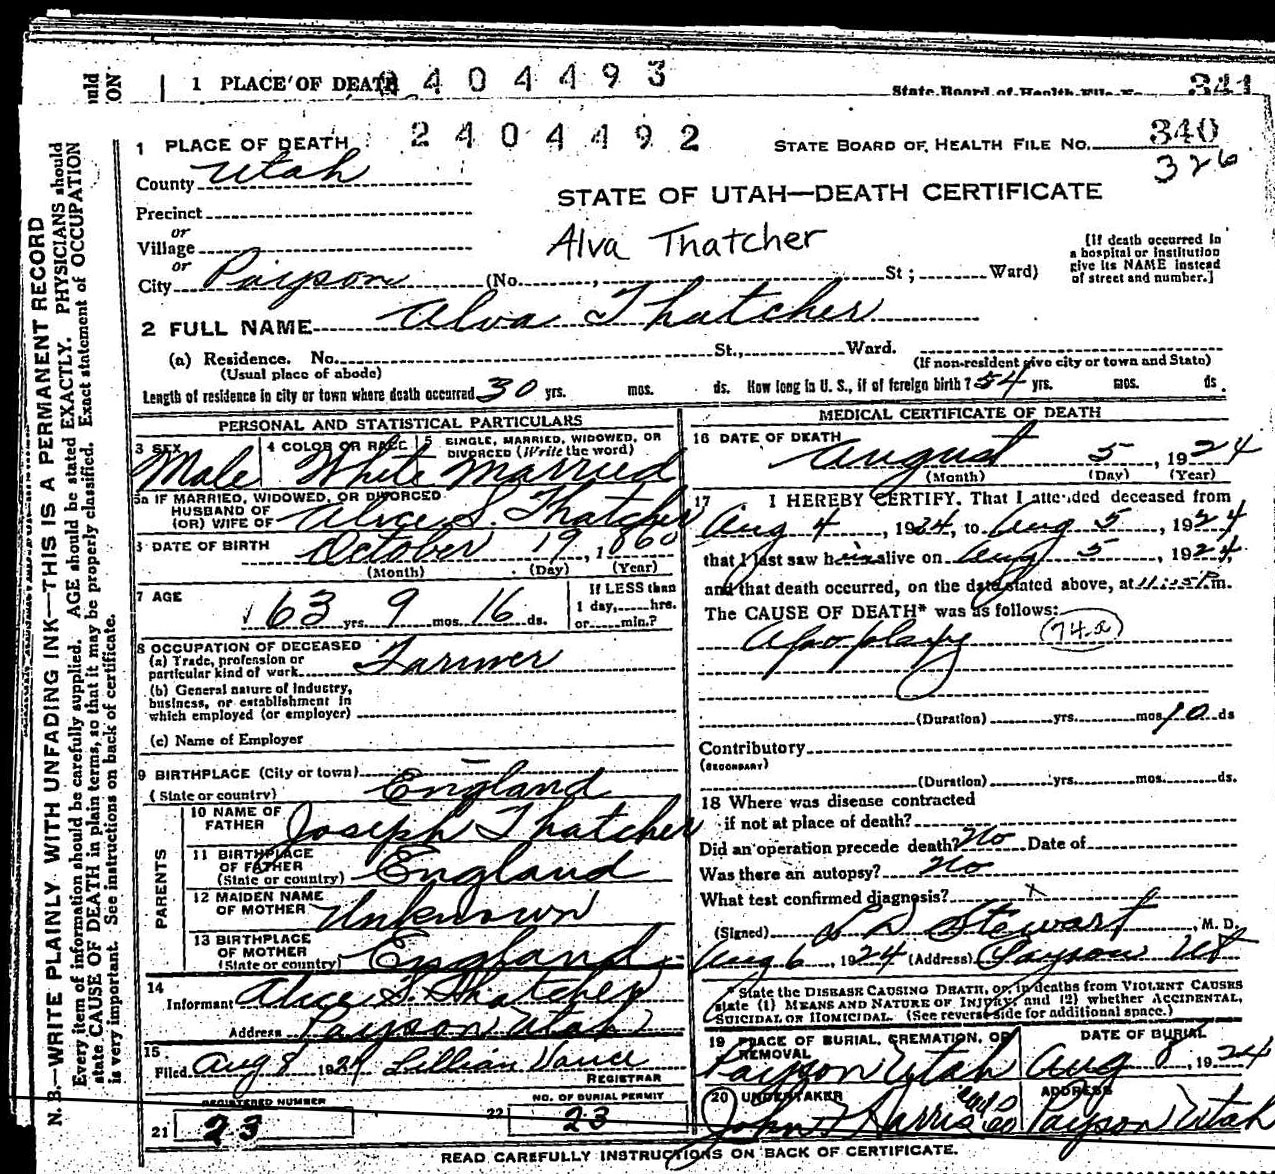 1 PLACE OF DEATH 404493 State Board of Health File No. 341
1 PLACE OF DEATH 2404492 STATE BOARD OF HEALTH FILE NO. 340
326
County Utah
STATE OF UTAH—DEATH CERTIFICATE
Precinct
or
Village
Alva Thatcher
[If death occurred in
a hospital or institution
give its NAME instead
of street and number.]
or
City Payson (No. , St; Ward)
2 FULL NAME Alva Thatcher
(a) Residence. No. St., Ward.
(Usual place of abode) (If non-resident give city or town and State)
Length of residence in city or town where death occurred 30 yrs. mos. ds. How long in U. S., if of foreign birth? 54 yrs. mos. ds.
PERSONAL AND STATISTICAL PARTICULARS
3 SEX 4 COLOR OR RACE 5 SINGLE, MARRIED, WIDOWED, OR
DIVORCED (Write the word)
Male White Married
5a IF MARRIED, WIDOWED, OR DIVORCED
HUSBAND OF
(OR) WIFE OF Alice S. Thatcher
DATE OF BIRTH October 19, 1860
(Month) (Day) (Year)
7 AGE 63 yrs. 9 mos. 16 ds.
If LESS than
1 day, hrs.
or min.?
8 OCCUPATION OF DECEASED
(a) Trade, profession or
particular kind of work Farmer
(b) General nature of industry,
business, or establishment in
which employed (or employer)
(c) Name of Employer
9 BIRTHPLACE (City or town)
(State or country) England
PARENTS
10 NAME OF
FATHER Joseph Thatcher
11 BIRTHPLACE
OF FATHER
(State or country) England
12 MAIDEN NAME
OF MOTHER Unknown
13 BIRTHPLACE
OF MOTHER
(State or country) England
14
Informant Alice S. Thatcher
Address Payson Utah
15
Filed Aug 8 1924 Lillian Vance
REGISTRAR
REGISTERED NUMBER NO. OF BURIAL PERMIT
21 23 22 23
MEDICAL CERTIFICATE OF DEATH
16 DATE OF DEATH
August 5, 1924
(Month) (Day) (Year)
17 I HEREBY CERTIFY. That I attended deceased from
Aug 4, 1924, to Aug 5, 1924
that I last saw him alive on Aug 5, 1924
and that death occurred, on the date stated above, at 11:55P m.
The CAUSE OF DEATH* was as follows:
Apoplexy (74a)
(Duration) yrs. mos. 10 ds
Contributory
(SECONDARY)
(Duration) yrs. mos. ds.
18 Where was disease contracted
if not at place of death?
Did an operation precede death? No Date of
Was there an autopsy? No
What test confirmed diagnosis?
(Signed) L D Stewart, M. D.
Aug 6, 1924 (Address) Payson Ut
* State the DISEASE CAUSING DEATH, or, in deaths from VIOLENT CAUSES
state (1) MEANS AND NATURE OF INJURY; and (2) whether ACCIDENTAL,
SUICIDAL OR HOMICIDAL. (See reverse side for additional space.)
19 PLACE OF BURIAL, CREMATION, OR
REMOVAL DATE OF BURIAL
Payson Utah Aug 8, 1924
20 UNDERTAKER ADDRESS
John Harris Payson Utah
READ CAREFULLY INSTRUCTIONS ON BACK OF CERTIFICATE.
N. B.—WRITE PLAINLY WITH UNFADING INK—THIS IS A PERMANENT RECORD
Every item of information should be carefully supplied. AGE should be stated EXACTLY. PHYSICIANS should
state CAUSE OF DEATH in plain terms, so that it may be properly classified. Exact statement of OCCUPATION
is very important. See instructions on back of certificate.